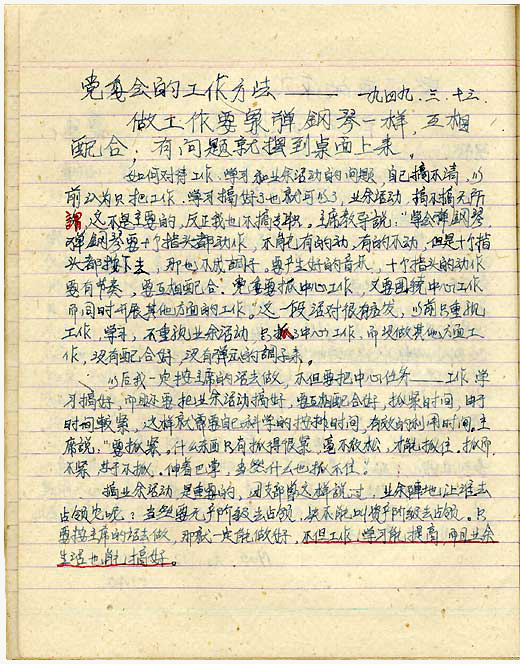 党委会的工作方法 —— 一九四九.三.十三.
做工作要象弹钢琴一样,互相
配合,有问题就摆到桌面上来。
如何对待工作、学习和业余活动的问题,自己搞不清,以
前认为只把工作、学习搞好了也就可以了,业余活动,搞不搞无所
謂,这不是主要的,反正我也不搞专职。主席教导说:“学会弹钢琴。
弹钢琴要十个指头都动作,不能有的动,有的不动,但是十个指
头都按下去,那也不成调子。要产生好的音乐,十个指头的动作
要有节奏,要互相配合。党委要抓中心工作,又要围绕中心工作
而同时开展其他方面的工作。”这一段话对很有启发,以前只重视
工作,学习,不重视业余活动,只抓了中心工作,而没做其他方面工
作,没有配合好,没有弹出的调子来。
以后我一定按主席的话去做,不但要把中心任务——工作、学
习搞好,而且还要把业余活动搞好,要互相配合好,抓紧时间,由于
时间较紧,这样就需要自己科学的按排时间,有效的利用时间。主
席说:“要抓紧。什么东西只有抓得很紧,毫不放松,才能抓住。抓而
不紧,等于不抓。伸着巴掌,当然什么也抓不住。”
搞业余活动是重要的,团支部曾这样说过,业余阵地让谁去
占领它呢?当然要无产阶级去占领,决不能叫资产阶级去占领。只
要按主席的话去做,那就一定能做好,不但工作、学习能提高,而且业余
生活也能搞好。